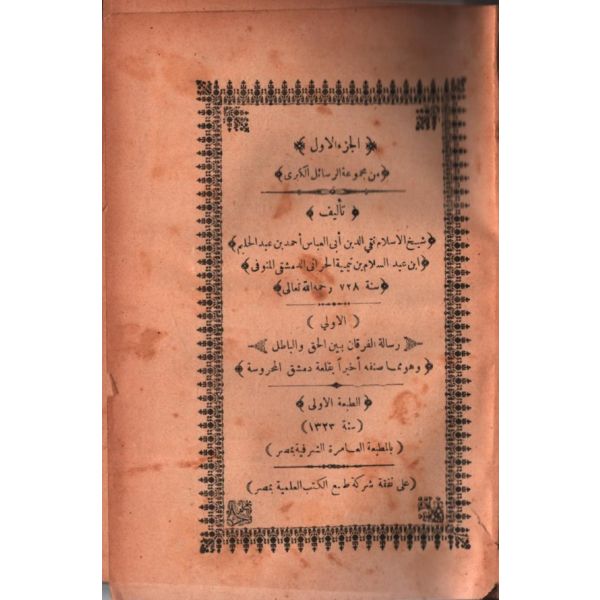 ﴿ الجزء الاول ﴾
﴿ من مجموعة الرسائل الكبرى ﴾
﴿ تأليف ﴾
﴿ شيخ الاسلام تقي الدين أبى العباس أحمد بن عبد الحليم ﴾
﴿ ابن عبد السلام بن تيمية الحرانى الدمشقى المتوفى ﴾
﴿ سنة ٧٢٨ رحمه الله تعالى ﴾
( الاولي )
رسالة الفرقان بين الحق والباطل
﴿ وهو مما صنفه أخيراً بقلعة دمشق المحروسة ﴾
﴿ الطبعة الاولى ﴾
( سنة ١٣٢٣ )
( بالمطبعة العامرة الشرفية بمصر )
( على نفقة شركة طبع الكتب العلمية بمصر )